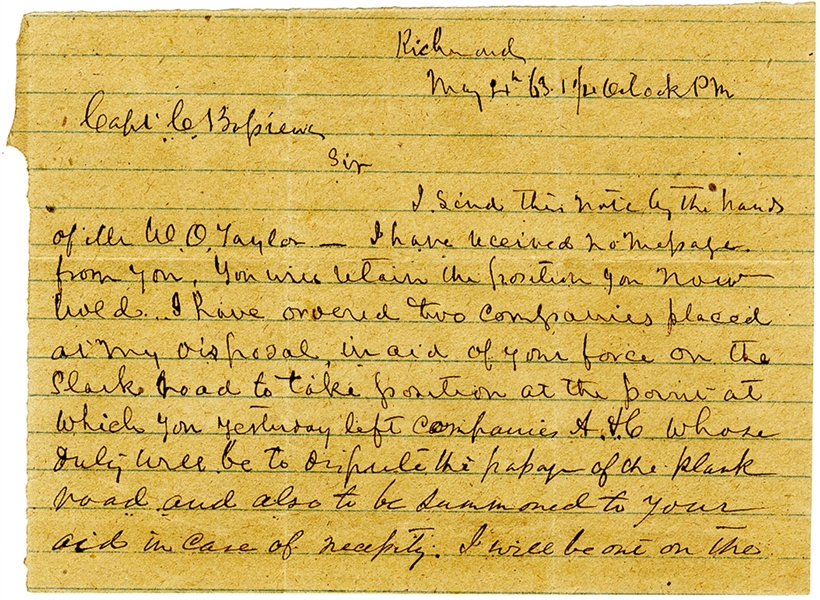 Richmond
May 4th 63. 1 1/4 Oclock PM
Capt C
Sir
I send this note by the hands
of Mr W. O. Taylor — I have received no message
from you. You will retain the position you now
hold. I have ordered two companies placed
at my disposal, in aid of your force on the
Plank road to take position at the point at
which you yesterday left Companies A. & C whose
duty will be to dispute the passage of the plank
road and also to be summoned to your
aid in case of necessity. I will be out on the